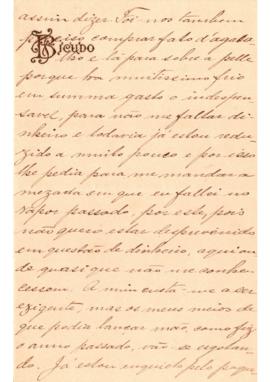 assim dizer. Foi-nos tambem
preciso comprar fato d'agasa
BICUDO
lho e lá para sobre a pelle
porque era muitissimo frio
em summa gasto o indespen
savel, para não me faltar di
nheiro e todavia já estou redu
zido a muito pouco e por isso
lhe pedia para me mandar a
mezada em que eu fallei no
vapor passado, por este, pois
não quero estar desprevinido
em questão de dinheiro, aqui on
de quasi que não me conhe
cessem. A mim custa-me a ser
exigente, mas os meus meios de
que podia lançar mão, como fiz
o anno passado, vão-se esgotan
do. Já estou inquieto pelo